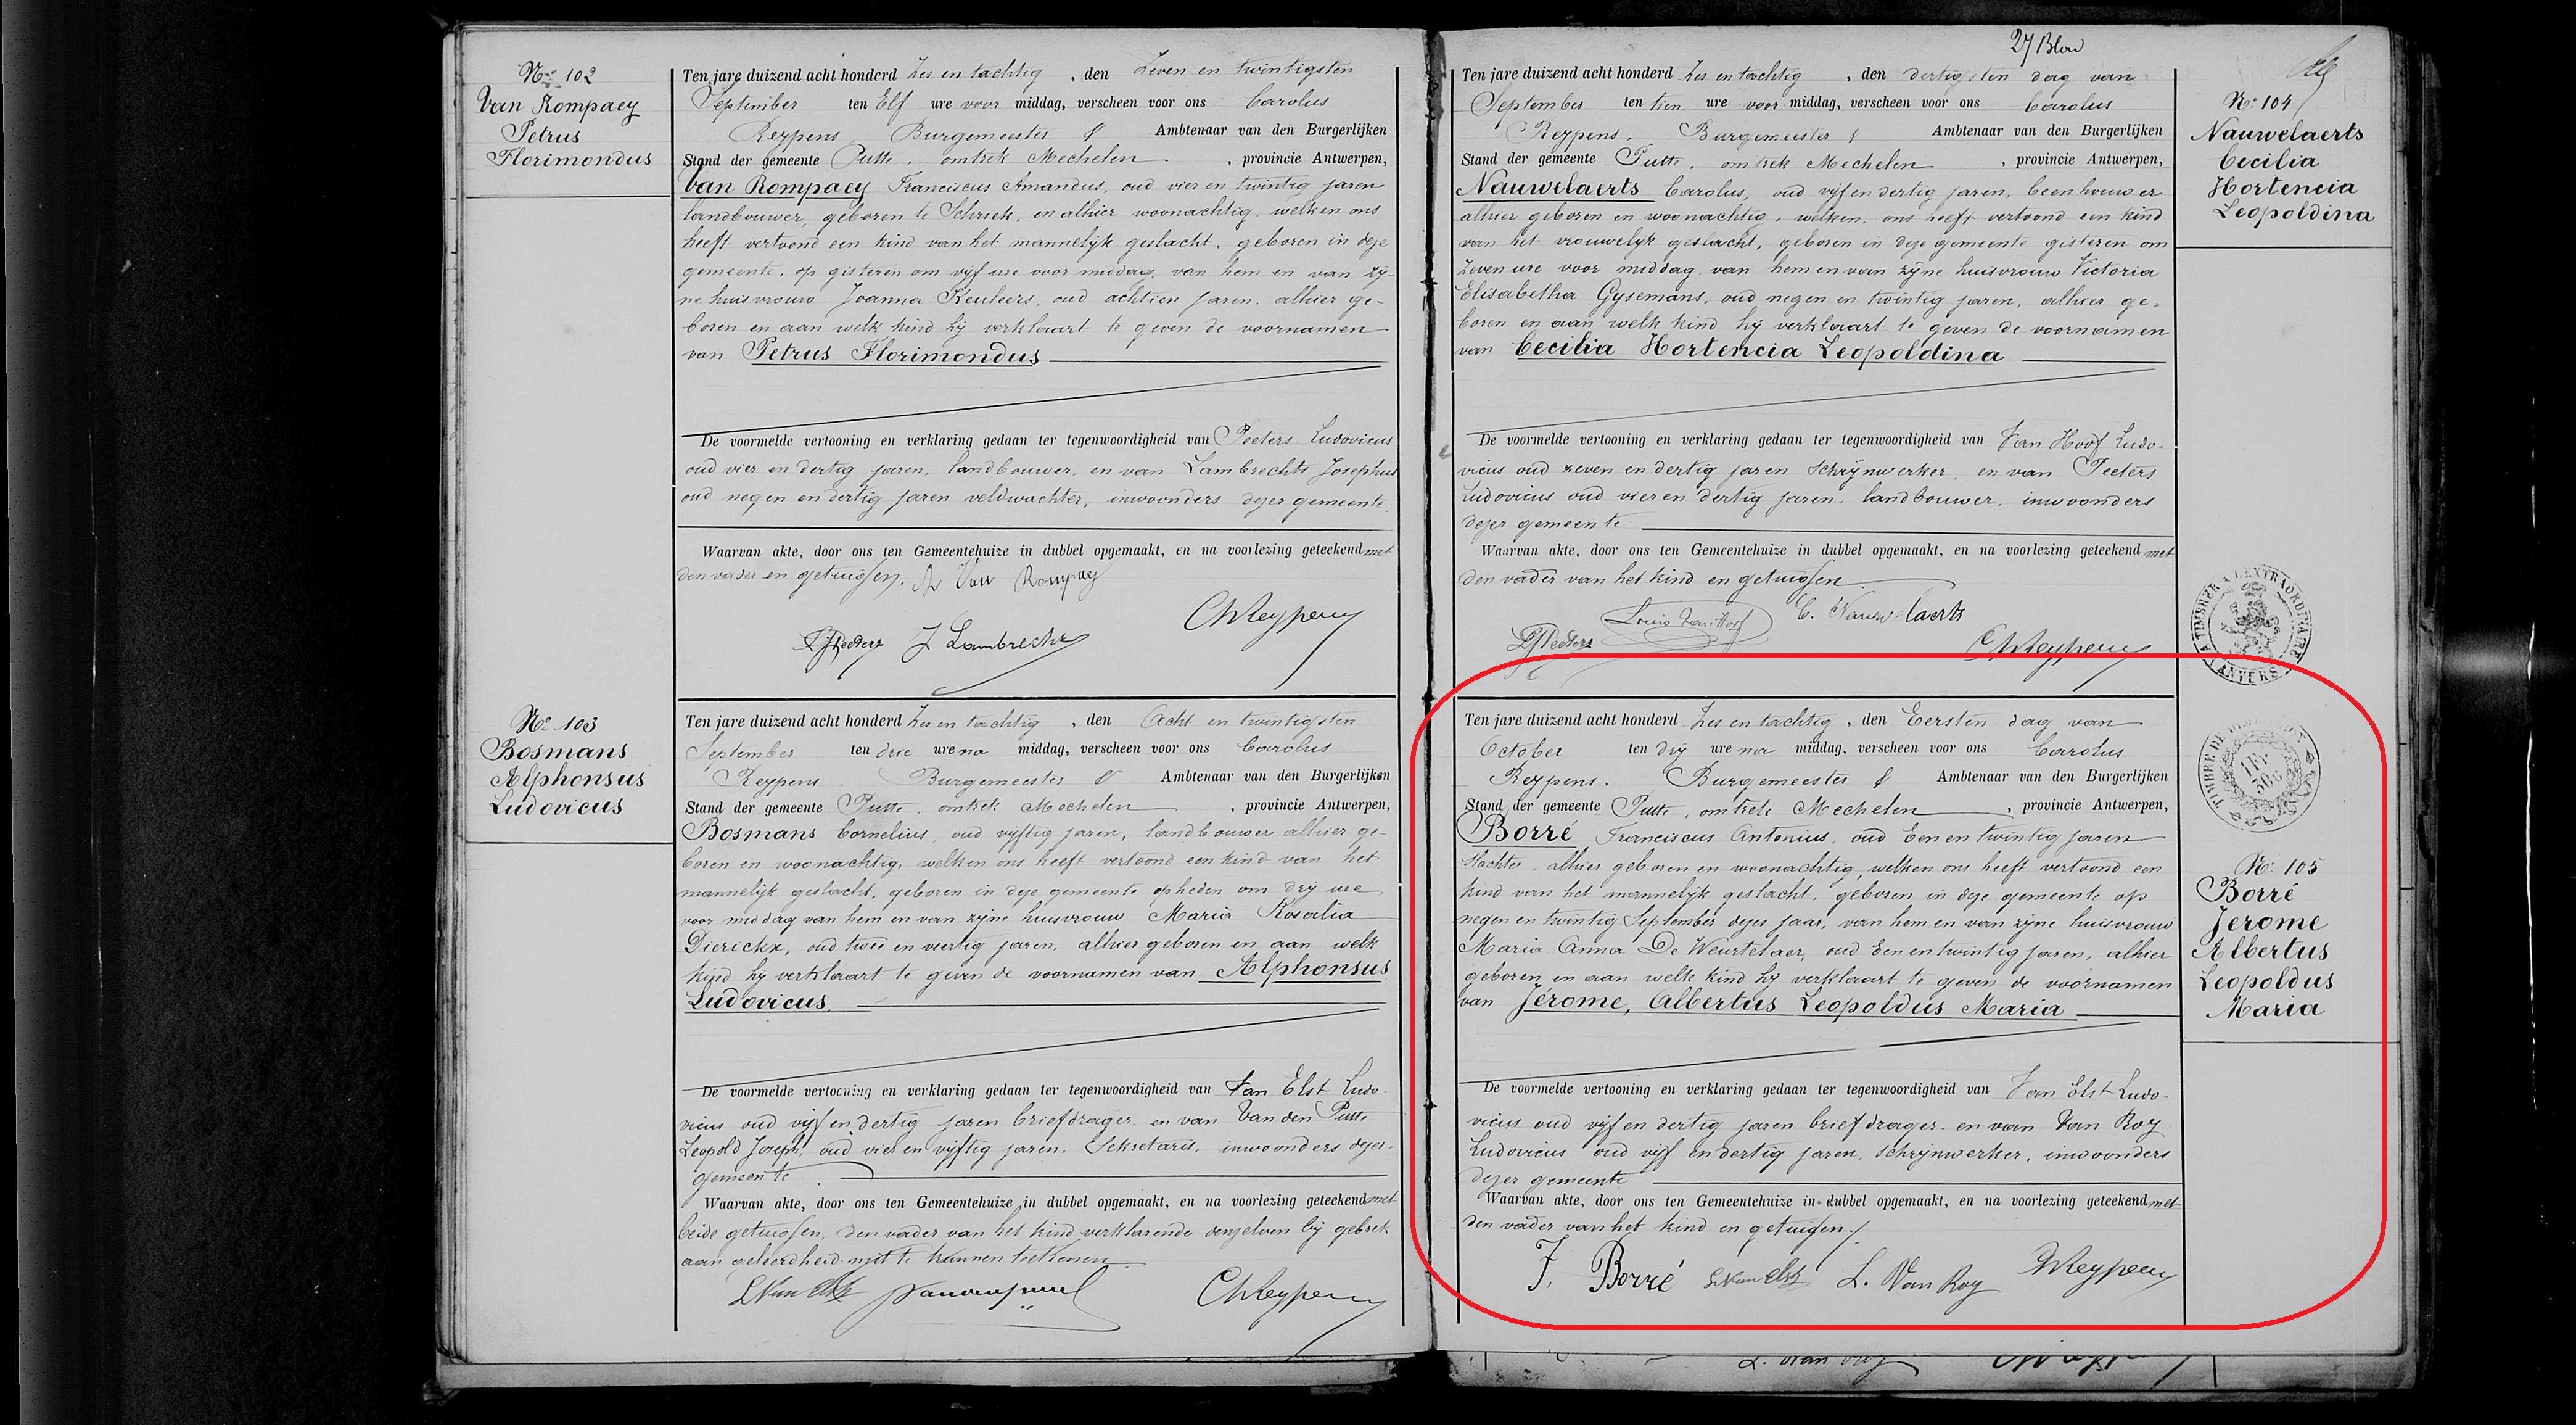 Nr 102
Van Rompaey
Petrus
Florimondus
Ten jare duizend acht honderd zes en tachtig, den Zeven en twintigsten
September ten Elf ure voor middag, verscheen voor ons Carolus
Reypens Burgemeester & Ambtenaar van den Burgerlijken
Stand der gemeente Putte, omtrek Mechelen, provincie Antwerpen,
Van Rompaey Franciscus Amandus, oud vier en twintig jaren
landbouwer, geboren te Schriek, en alhier woonachtig, welken ons
heeft vertoond een kind van het mannelijk geslacht, geboren in deze
gemeente, op gisteren om vijf ure voor middag van hem en van zij-
ne huisvrouw Joanna Keuleers, oud achtien jaren, alhier ge-
boren en aan welk kind hij verklaart te geven de voornamen
van Petrus Florimondus
De voormelde vertooning en verklaring gedaan ter tegenwoordigheid van Peeters Ludovicus
oud vier en dertig jaren, landbouwer, en van Lambrechts Josephus
oud negen en dertig jaren veldwachter, inwoonders dezer gemeente.
Waarvan akte, door ons ten Gemeentehuize in dubbel opgemaakt, en na voorlezing geteekend met
den vader en getuigen. Van Rompaey
Peeters J Lambrechts CReypens
No 103
Bosmans
Alphonsus
Ludovicus
Ten jare duizend acht honderd zes en tachtig, den Acht en twintigsten
September ten drie ure na middag, verscheen voor ons Carolus
Reypens Burgemeester & Ambtenaar van den Burgerlijken
Stand der gemeente Putte, omtrek Mechelen, provincie Antwerpen,
Bosmans Cornelius, oud vijftig jaren, landbouwer alhier ge-
boren en woonachtig, welken ons heeft vertoond een kind van het
mannelijk geslacht, geboren in deze gemeente op heden om drij ure
voor middag van hem en van zijne huisvrouw Maria Rosalia
Dierickx, oud twee en veertig jaren, alhier geboren en aan welk
kind hij verklaart te geven de voornamen van Alphonsus
Ludovicus.
De voormelde vertooning en verklaring gedaan ter tegenwoordigheid van Van Elst Ludo-
vicus oud vijf en dertig jaren briefdrager en van Van den Putte
Leopold Joseph, oud vier en vijftig jaren, Sekretaris, inwoonders dezer
gemeente
Waarvan akte, door ons ten Gemeentehuize in dubbel opgemaakt, en na voorlezing geteekend met
beide getuigen, den vader van het kind verklarende zulks bij gebrek
aan geleerdheid niet te kunnen teekenen
LVan Elst CReypens
27 Blad
No 104
Nauwelaerts
Cecilia
Hortencia
Leopoldina
Ten jare duizend acht honderd zes en tachtig, den dertigsten dag van
September ten tien ure voor middag, verscheen voor ons Carolus
Reypens. Burgemeester & Ambtenaar van den Burgerlijken
Stand der gemeente Putte, omtrek Mechelen, provincie Antwerpen,
Nauwelaerts Carolus, oud vijf en dertig jaren, beenhouwer
alhier geboren en woonachtig, welken ons heeft vertoond een kind
van het vrouwelijk geslacht, geboren in deze gemeente gisteren om
zeven ure voor middag van hem en van zijne huisvrouw Victoria
Elisabetha Gysemans, oud negen en twintig jaren, alhier ge-
boren en aan welk kind hij verklaart te geven de voornamen
van Cecilia Hortencia Leopoldina
De voormelde vertooning en verklaring gedaan ter tegenwoordigheid van Van Hoof Ludo-
vicus oud zeven en dertig jaren schrijnwerker en van Peeters
Ludovicus oud vier en dertig jaren, landbouwer, inwoonders
dezer gemeente
Waarvan akte, door ons ten Gemeentehuize in dubbel opgemaakt, en na voorlezing geteekend met
den vader van het kind en getuigen
Peeters Louis Van Hoof C. Nauwelaerts CReypens
A TIMBRER A L'EXTRAORDINAIRE
ANVERS
No 105
Borré
Jerome
Albertus
Leopoldus
Maria
Ten jare duizend acht honderd zes en tachtig, den Eersten dag van
October ten drij ure na middag, verscheen voor ons Carolus
Reypens. Burgemeester & Ambtenaar van den Burgerlijken
Stand der gemeente Putte, omtrek Mechelen, provincie Antwerpen,
Borré Franciscus Antonius, oud Een en twintig jaren
slachter, alhier geboren en woonachtig, welken ons heeft vertoond een
kind van het mannelijk geslacht, geboren in deze gemeente op
negen en twintig September dezes jaar, van hem en van zijne huisvrouw
Maria Anna De Weurtelaer, oud Een en twintig jaren, alhier
geboren en aan welk kind hij verklaart te geven de voornamen
van Jérome, Albertus Leopoldus Maria
De voormelde vertooning en verklaring gedaan ter tegenwoordigheid van Van Elst Ludo-
vicus oud vijf en dertig jaren briefdrager en van Van Roy
Ludovicus oud vijf en dertig jaren, schrijnwerker, inwoonders
dezer gemeente
Waarvan akte, door ons ten Gemeentehuize in dubbel opgemaakt, en na voorlezing geteekend met
den vader van het kind en getuigen.
F. Borré LVan Elst L. Van Roy CReypens